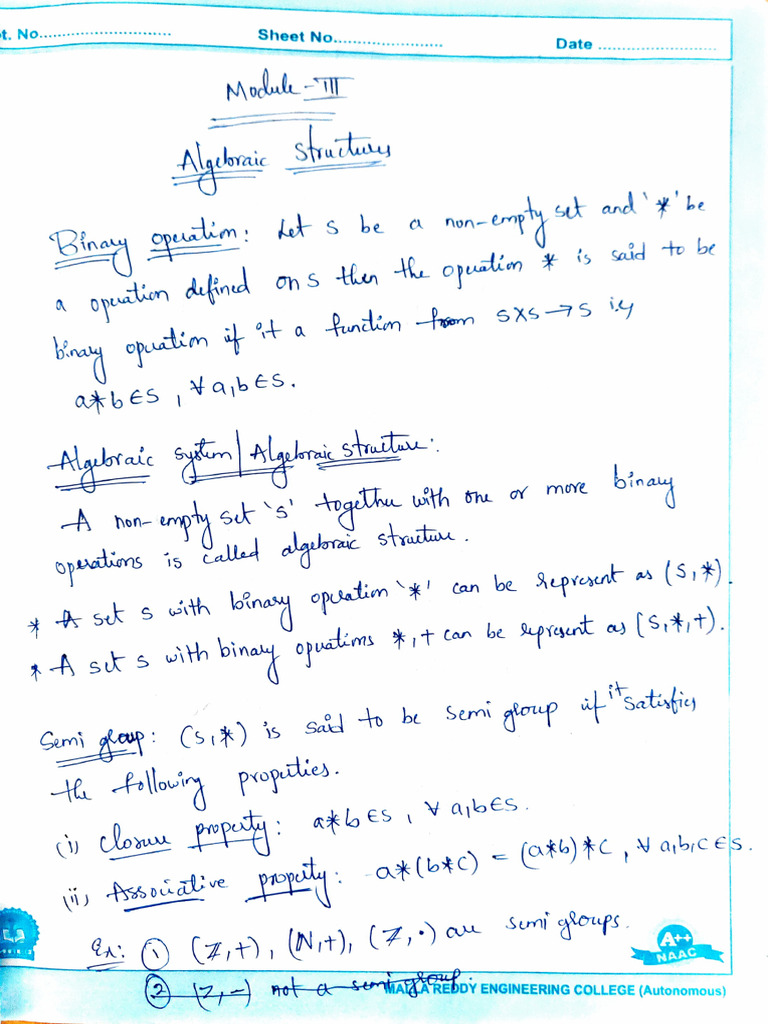 t. No............................ Sheet No......................... Date ...........................
Module - III
Algebraic Structures
Binary operation: Let S be a non-empty set and '*' be
a operation defined on S then the operation * is said to be
binary operation if it a function from S×S → S i.e.,
a*b ∈ S, ∀ a,b ∈ S.
Algebraic system | Algebraic structure:
A non-empty set 's' together with one or more binary
operations is called algebraic structure.
* A set S with binary operation '*' can be represent as (S,*).
* A set S with binary operations *,+ can be represent as (S,*,+).
Semi group: (S,*) is said to be semi group if it satisfies
the following properties.
(i) Closure property: a*b ∈ S, ∀ a,b ∈ S.
(ii) Associative property: a*(b*c) = (a*b)*c, ∀ a,b,c ∈ S.
Ex: ① (Z,+), (N,+), (Z,·) are semi groups.
② (Z,-) not a semi group.
A++
NAAC
MALLA REDDY ENGINEERING COLLEGE (Autonomous)